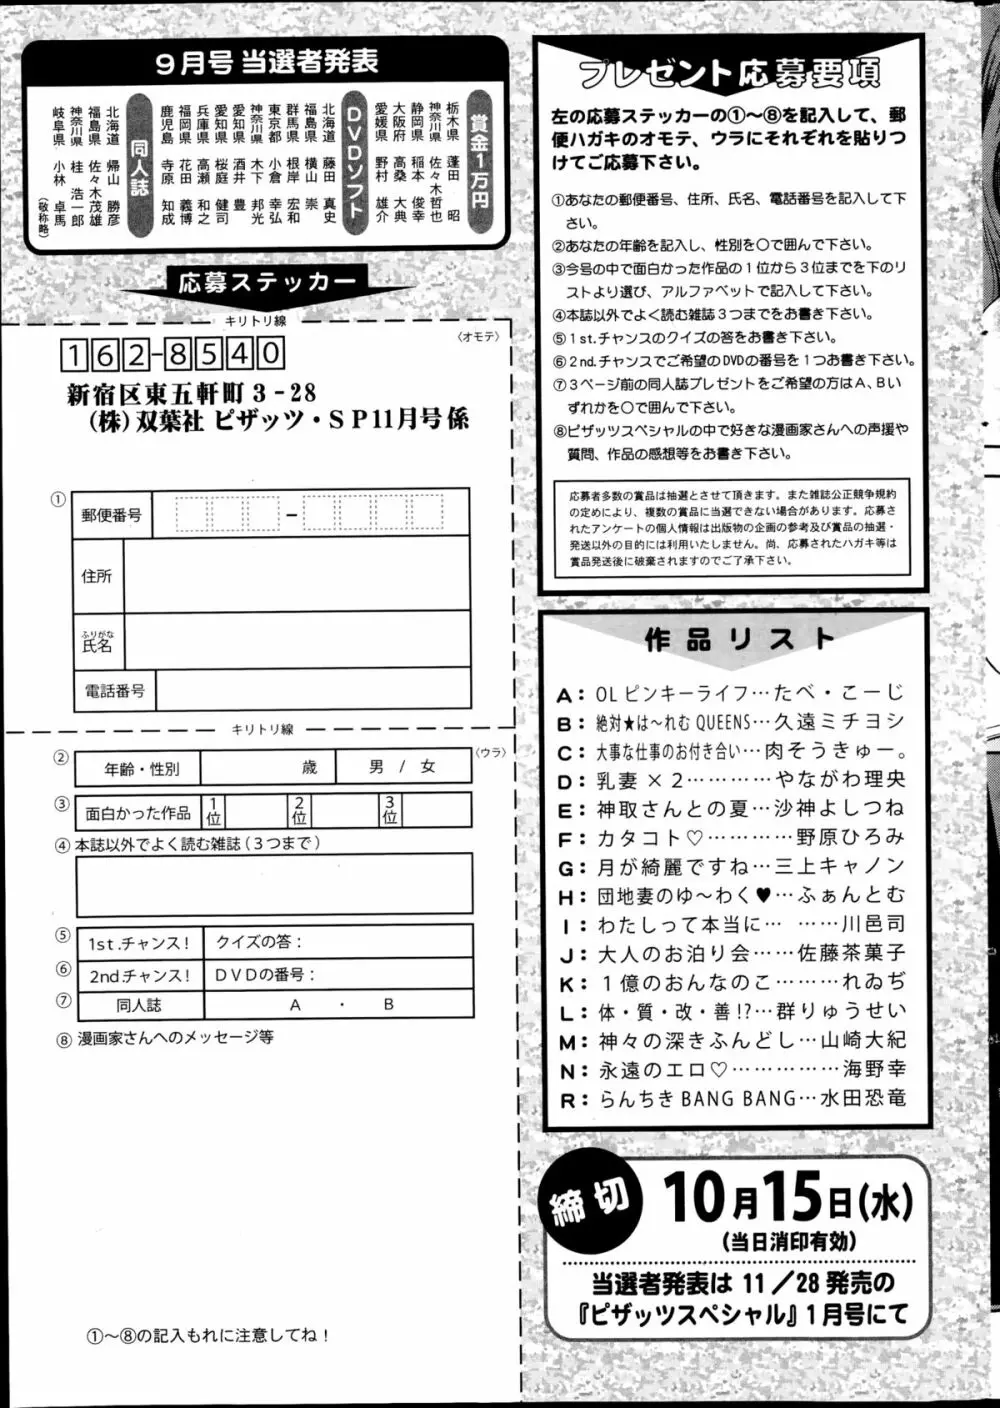 9月号 当選者発表
賞金1万円
栃木県 蓬田 昭
神奈川県 佐々木哲也
静岡県 稲本 俊幸
大阪府 高桑 大典
愛媛県 野村 雄介
DVDソフト
北海道 藤田 真史
福島県 横山 崇
群馬県 根岸 宏和
東京都 小倉 幸弘
神奈川県 木下 邦光
愛知県 酒井 豊
愛知県 桜庭 健司
兵庫県 高瀬 和之
福岡県 花田 義博
鹿児島 寺原 知成
同人誌
北海道 帰山 勝彦
福島県 佐々木茂雄
神奈川県 桂 浩一郎
岐阜県 小林 卓馬
(敬称略)
応募ステッカー
キリトリ線
〈オモテ〉
162-8540
新宿区東五軒町3-28
(株)双葉社 ピザッツ・SP11月号係
①
郵便番号
住所
ふりがな
氏名
電話番号
キリトリ線
〈ウラ〉
② 年齢・性別 歳 男 / 女
③ 面白かった作品 1位 2位 3位
④ 本誌以外でよく読む雑誌(3つまで)
⑤ 1st.チャンス! クイズの答:
⑥ 2nd.チャンス! DVDの番号:
⑦ 同人誌 A ・ B
⑧ 漫画家さんへのメッセージ等
①〜⑧の記入もれに注意してね!
プレゼント応募要項
左の応募ステッカーの①〜⑧を記入して、郵
便ハガキのオモテ、ウラにそれぞれを貼りつ
けてご応募下さい。
①あなたの郵便番号、住所、氏名、電話番号を記入して下
さい。
②あなたの年齢を記入し、性別を○で囲んで下さい。
③今号の中で面白かった作品の1位から3位までを下のリ
ストより選び、アルファベットで記入して下さい。
④本誌以外でよく読む雑誌3つまでをお書き下さい。
⑤1st.チャンスのクイズの答をお書き下さい。
⑥2nd.チャンスでご希望のDVDの番号を1つお書き下さい。
⑦3ページ前の同人誌プレゼントをご希望の方はA、Bい
ずれかを○で囲んで下さい。
⑧ピザッツスペシャルの中で好きな漫画家さんへの声援や
質問、作品の感想等をお書き下さい。
応募者多数の賞品は抽選とさせて頂きます。また雑誌公正競争規約
の定めにより、複数の賞品に当選できない場合があります。応募さ
れたアンケートの個人情報は出版物の企画の参考及び賞品の抽選・
発送以外の目的には利用いたしません。尚、応募されたハガキ等は
賞品発送後に破棄されますのでご了承下さい。
作品リスト
A:OLピンキーライフ…たべ・こーじ
B:絶対★は〜れむQUEENS…久遠ミチヨシ
C:大事な仕事のお付き合い…肉そうきゅー。
D:乳妻×2…………やながわ理央
E:神取さんとの夏…沙神よしつね
F:カタコト♡…………野原ひろみ
G:月が綺麗ですね…三上キャノン
H:団地妻のゆ〜わく♥…ふぁんとむ
I:わたしって本当に… ……川邑司
J:大人のお泊り会…佐藤茶菓子
K:1億のおんなのこ…れゐぢ
L:体・質・改・善!?…群りゅうせい
M:神々の深きふんどし…山崎大紀
N:永遠のエロ♡…………海野幸
R:らんちきBANG BANG…水田恐竜
締切
10月15日(水)
(当日消印有効)
当選者発表は11/28発売の
『ピザッツスペシャル』1月号にて